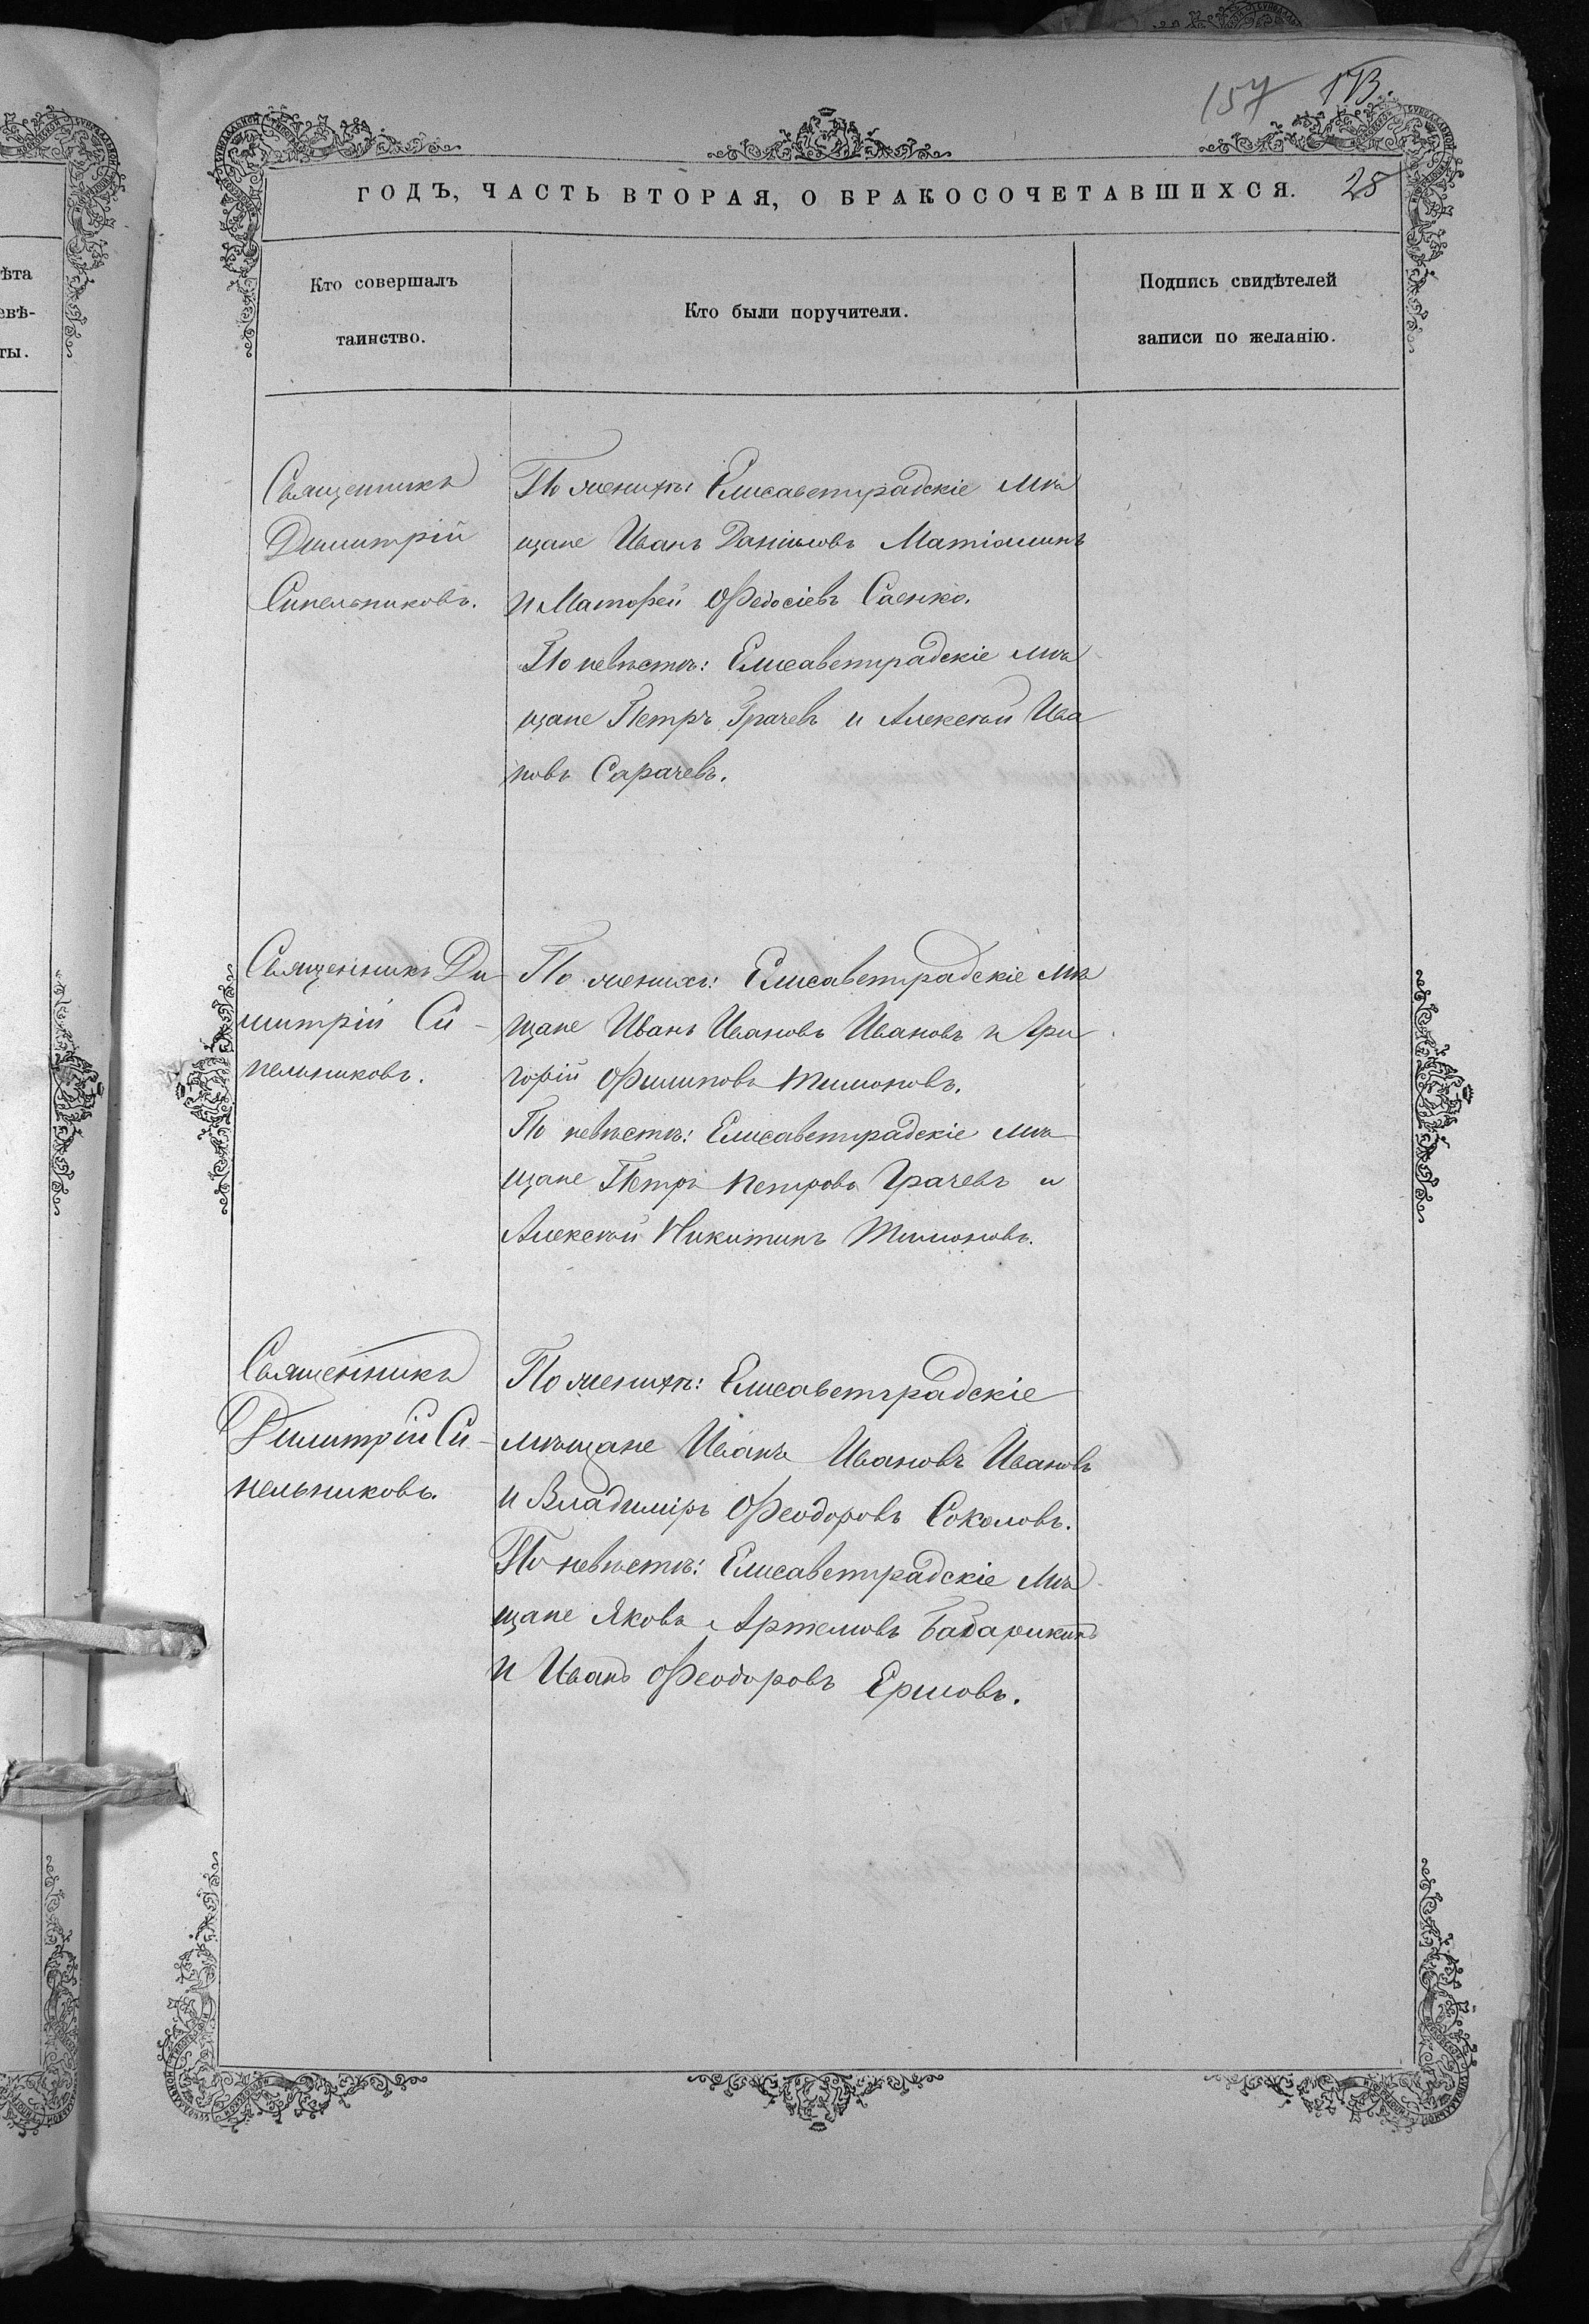 157 173.
ГОДЪ, ЧАСТЬ ВТОРАЯ, О БРАКОСОЧЕТАВШИХСЯ. 28
ѣта
евѣ-
ты.
Кто совершалъ
таинство.
Кто были поручители.
Подпись свидѣтелей
записи по желанію.
Священникъ
Димитрій
Синельниковъ.
По женихѣ: Елисаветградскіе мѣ
щане Иванъ Даніиловъ
и Матфей Ѳедосіевъ Саенко.
По невѣстѣ: Елисаветградскіе мѣ
щане Петръ Грачевъ и Алексѣй Ива
новъ Сарачевъ.
Священникъ Ди
митрій Си-
нельниковъ.
По женихѣ: Елисаветградскіе мѣ
щане Иванъ Ивановъ Ивановъ и Гри
горій Филиповъ Тимоновъ.
По невѣстѣ: Елисаветградскіе мѣ
щане Петръ Петровъ Грачевъ и
Алексѣй Никитинъ Тимоновъ.
Священникъ
Димитрій Си-
нельниковъ.
По женихѣ: Елисаветградскіе
мѣщане Иванъ Ивановъ Ивановъ
и Владиміръ Феодоровъ Соколовъ.
По невѣстѣ: Елисаветградскіе мѣ
щане Яковъ Артемовъ
и Иванъ Феодоровъ Ершовъ.